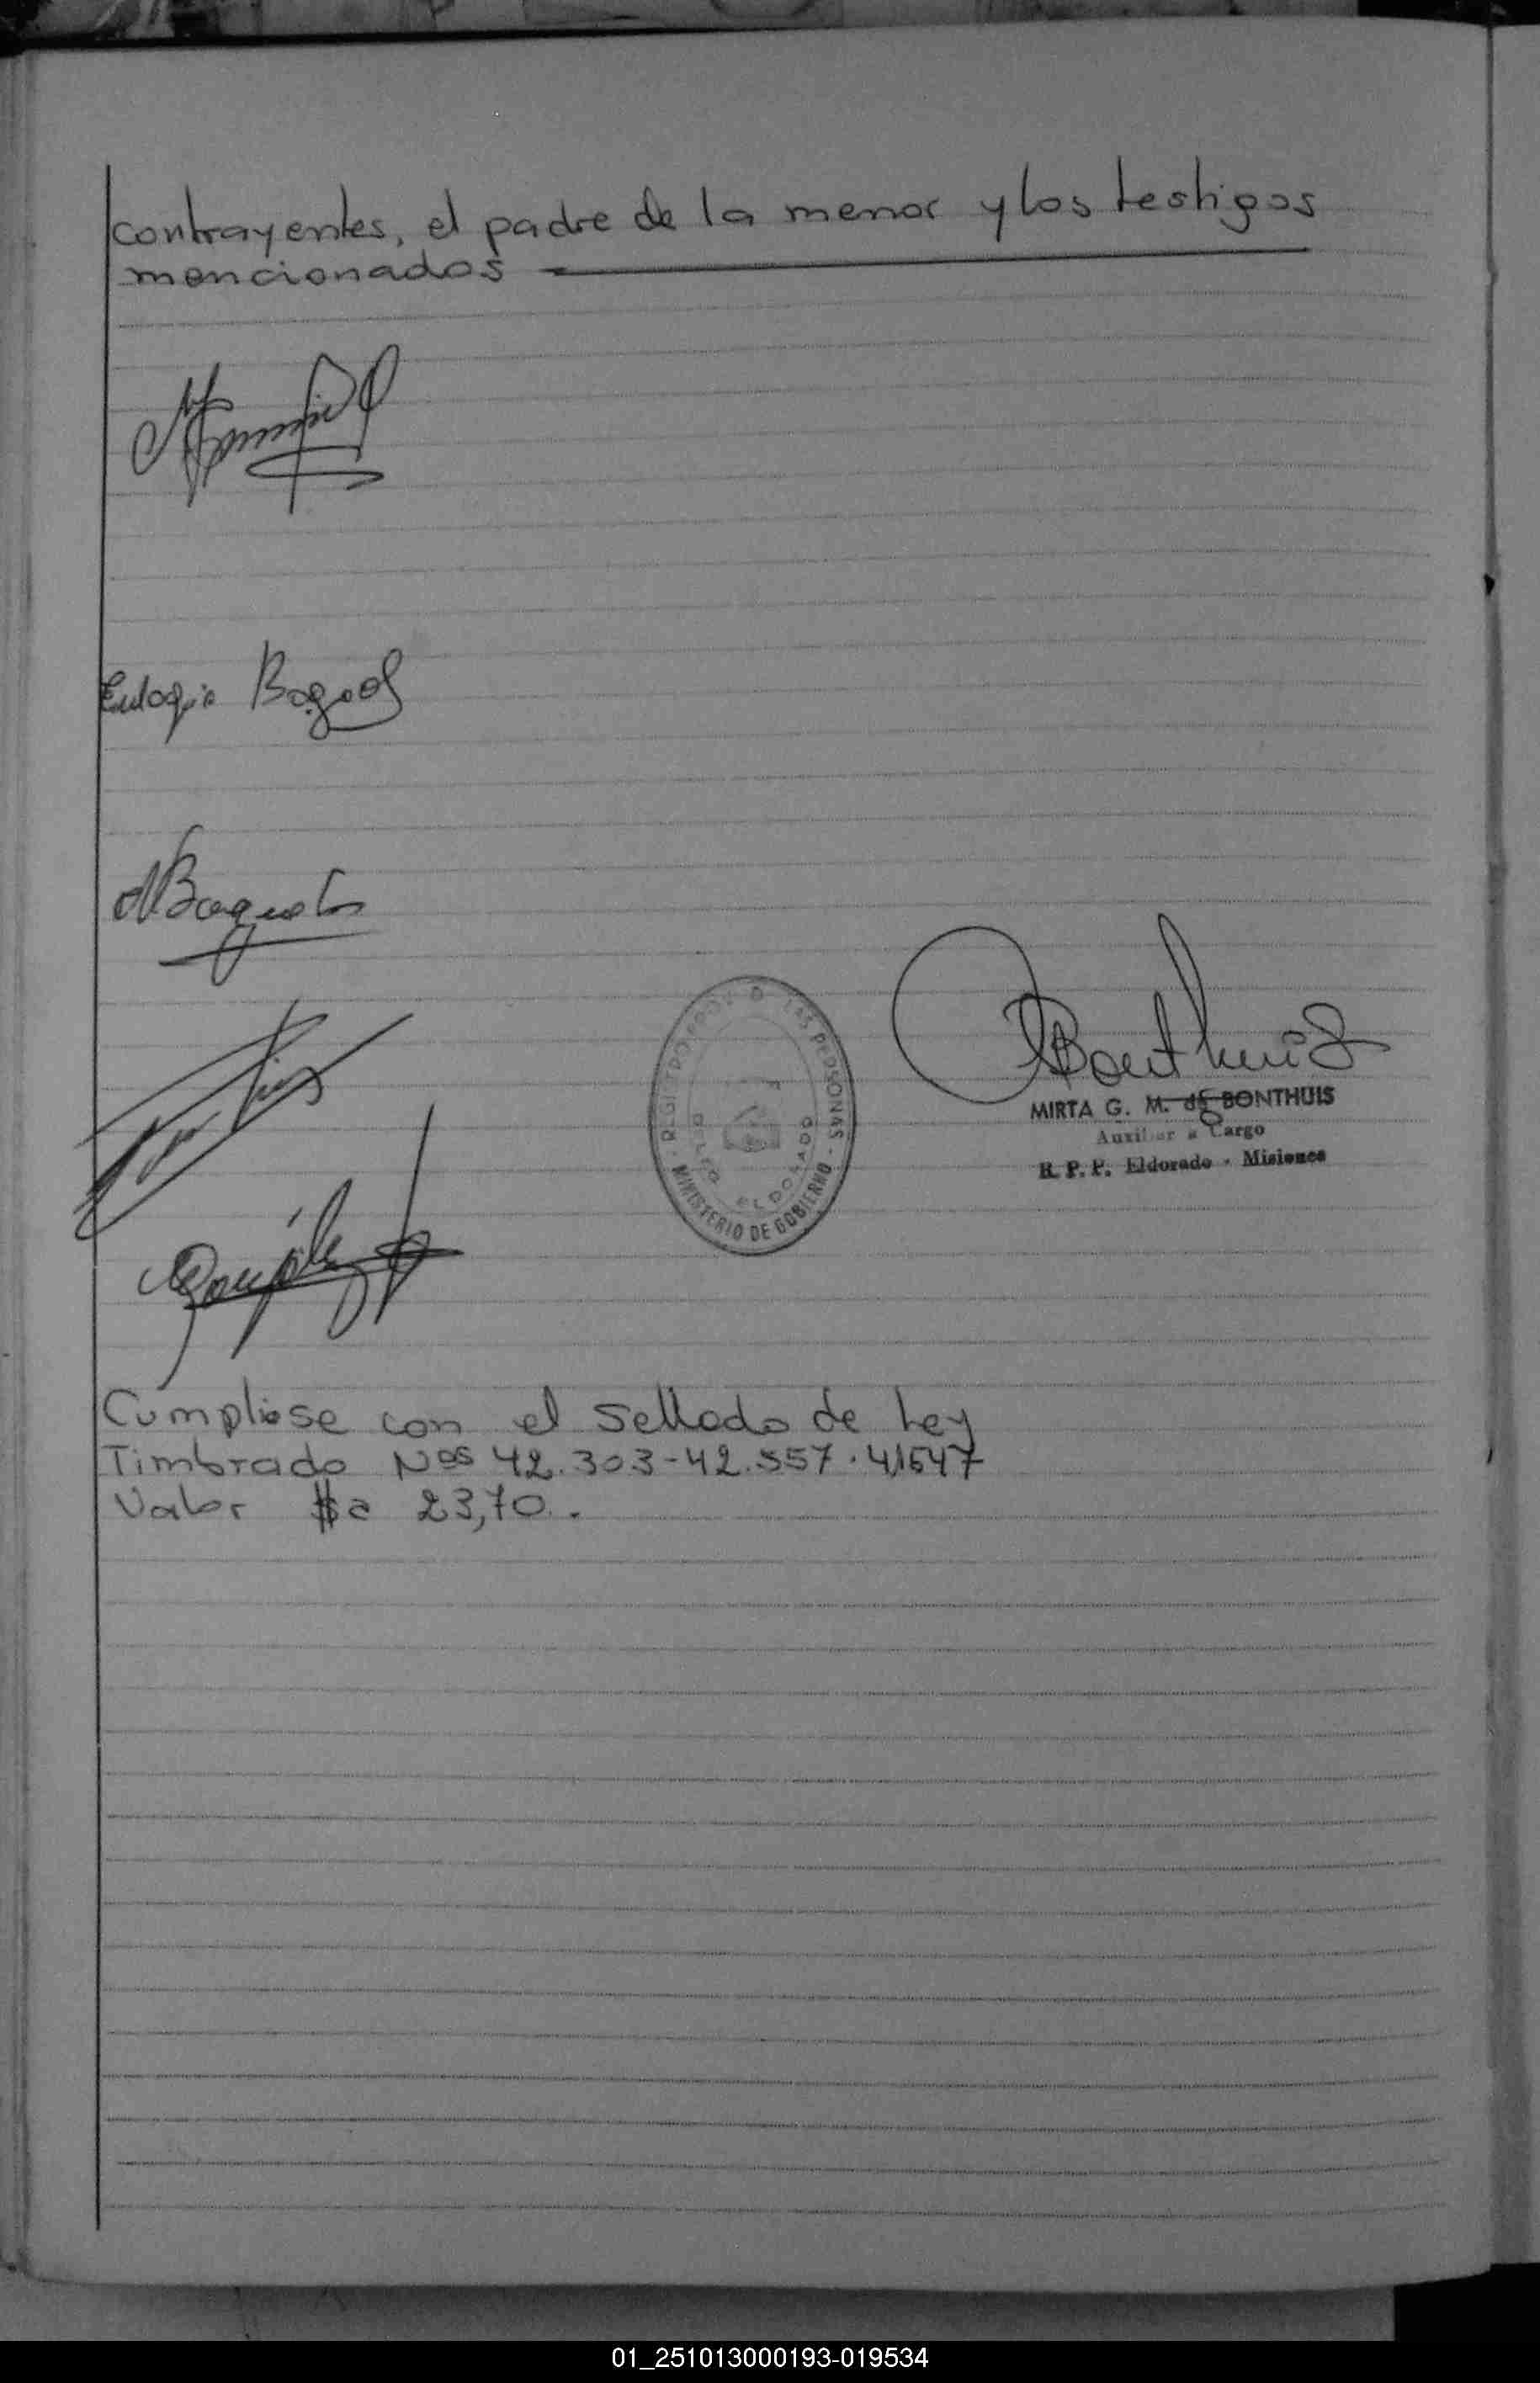 contrayentes, el padre de la menor y los testigos
mencionados
Eulogio
Bonthuis
MIRTA G. M. de BONTHUIS
Auxiliar a Cargo
R. P. P. Eldorado - Misiones
LAS PERSONAS
ELDORADO
- MINISTERIO DE GOBIERNO -
González
Cumpliose con el Sellado de Ley
Timbrado Nos 42.303-42.557.41547
Valor $a 23,70.
01_251013000193-019534